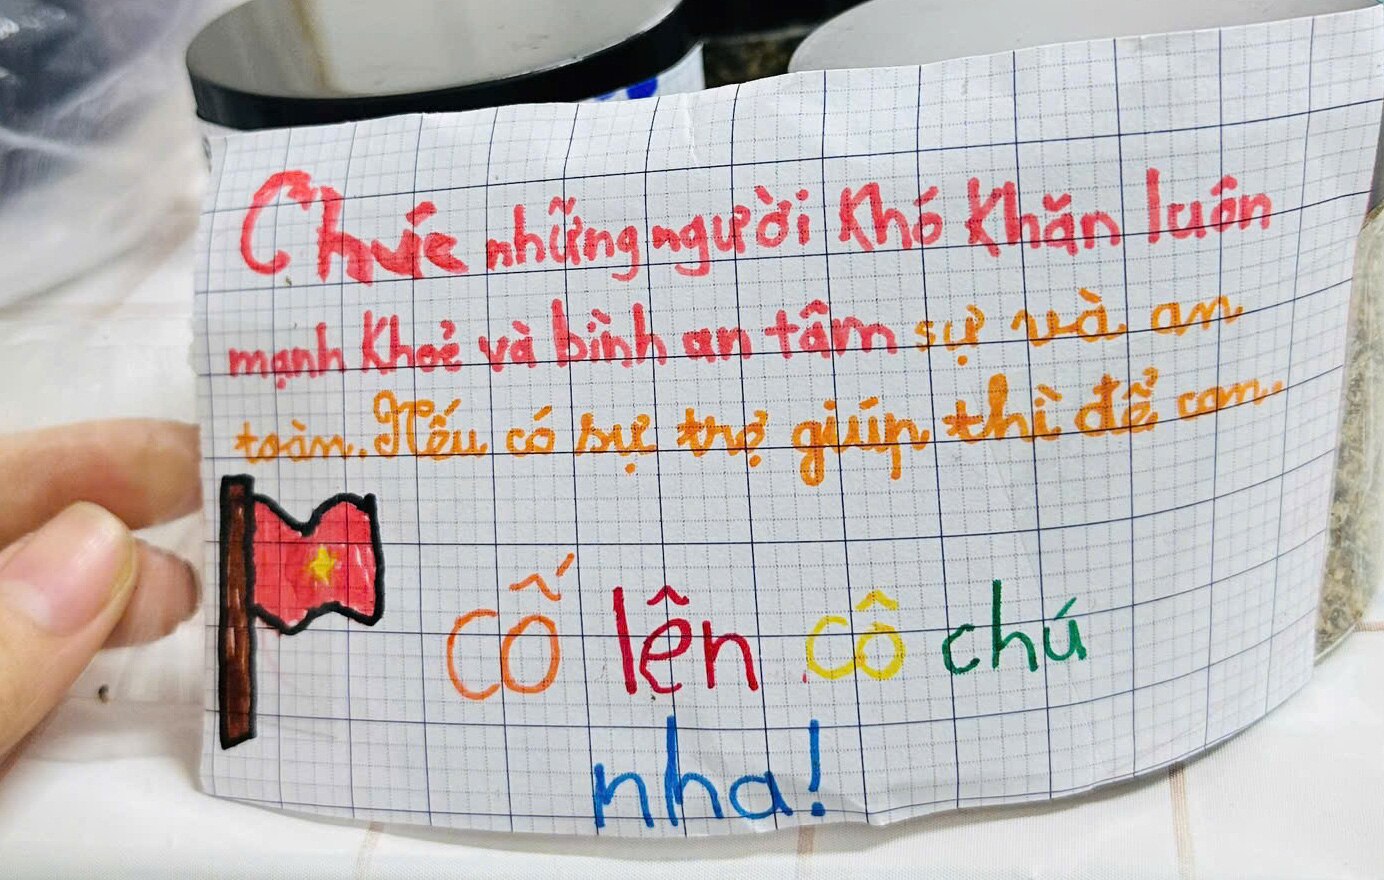 Chúc những người khó khăn luôn
mạnh khoẻ và bình an tâm sự và an
toàn. Nếu có sự trợ giúp thì để con.
cố lên cô chú
nha!